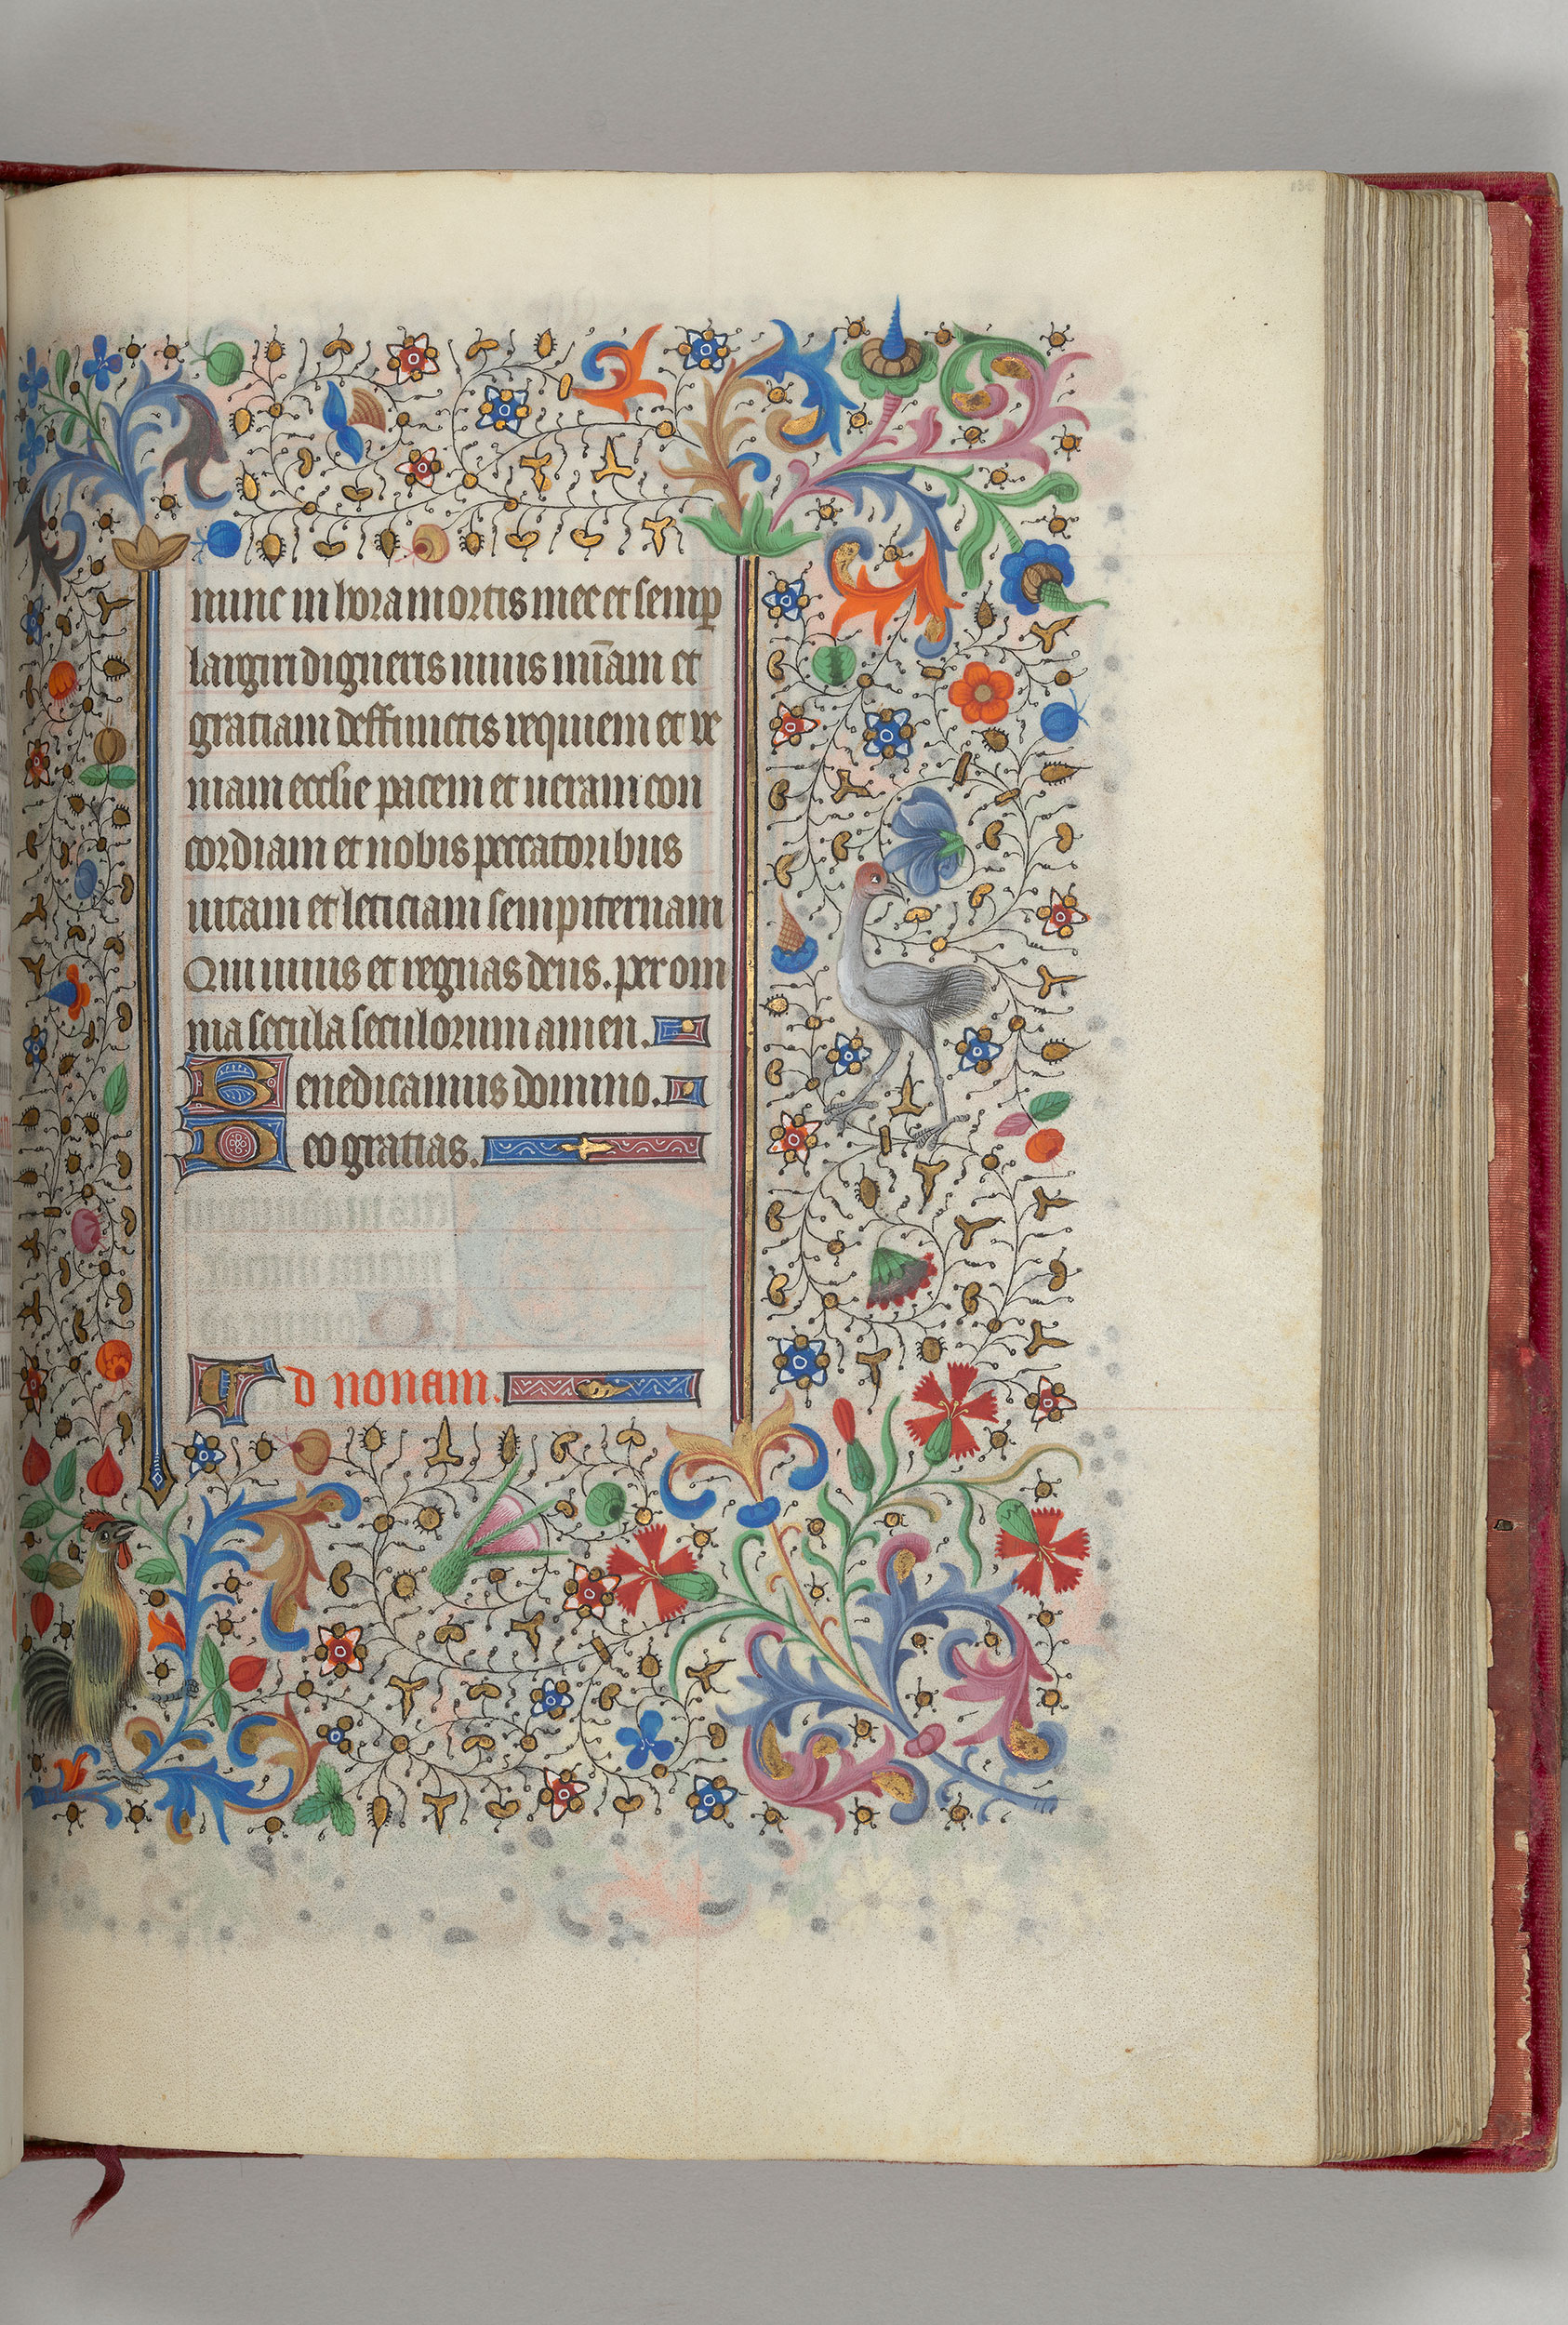 nunc in hora mortis mee et semꝑ
largiri digneris uiuis mīam et
gratiam deffunctis requiem et ve
niam ecclie pacem et ueram con
cordiam et nobis peccatoribus
uitam et leticiam sempiternam
Qui uiuis et regnas deus. per om
nia secula seculorum amen.
Benedicamus domino.
Deo gratias.
Ad nonam.